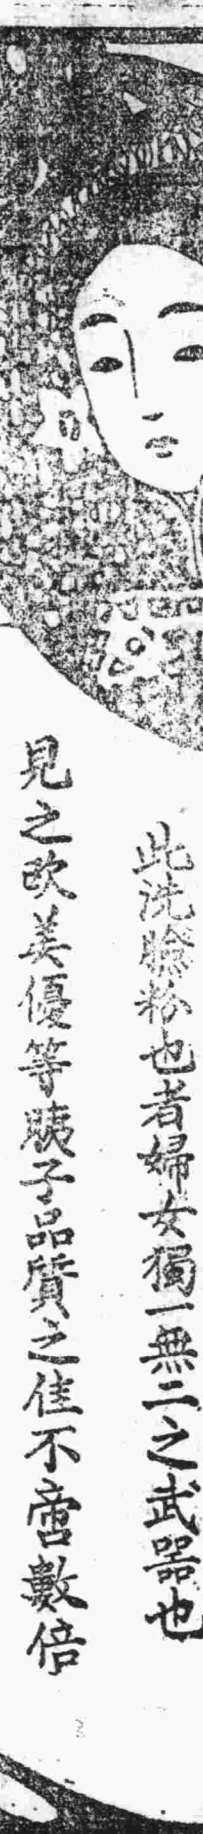 此洗臉粉也者婦女獨一無二之武器也
見之欧美優等胰子品質之佳不啻數倍